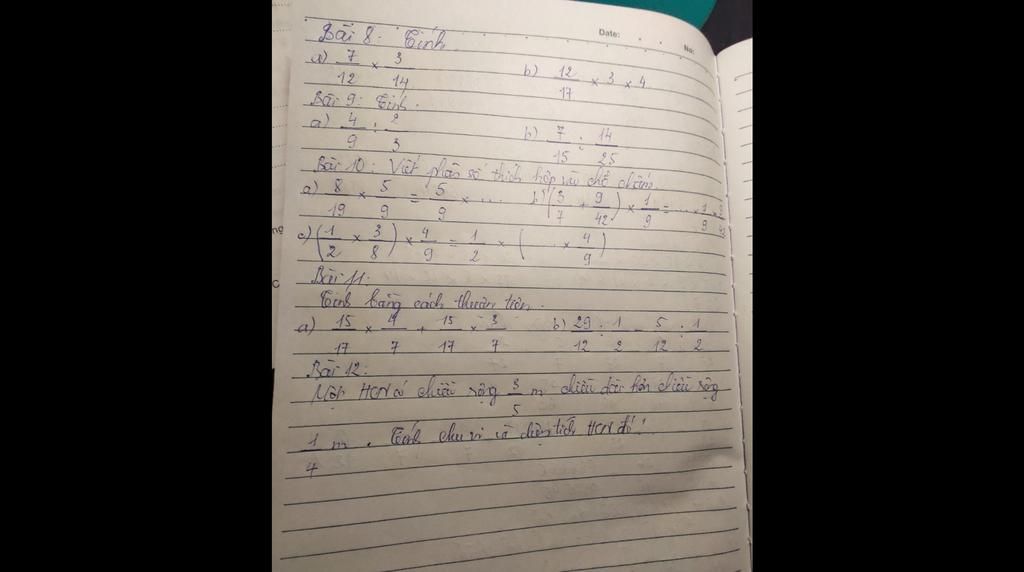 Date: No:
Bài 8: Tính
a) 7/12 × 3/14 b) 12/17 × 3 × 4
Bài 9: Tính.
a) 4/9 : 2/3 b) 7/15 : 14/25
Bài 10: Viết phân số thích hợp vào chỗ chấm.
a) 8/19 × 5/9 = 5/9 × ... b) (3/7 + 9/42) × 1/9 = ... × 1/9
c) (1/2 × 3/8) × 4/9 = 1/2 × (... × 4/9)
Bài 11:
Tính bằng cách thuận tiện.
a) 15/17 × 4/7 + 15/17 × 3/7 b) 29/12 : 1/2 - 5/12 : 1/2
Bài 12:
Một HCN có chiều rộng 3/5 m chiều dài hơn chiều rộng
1/4 m. Tính chu vi và diện tích HCN đó!